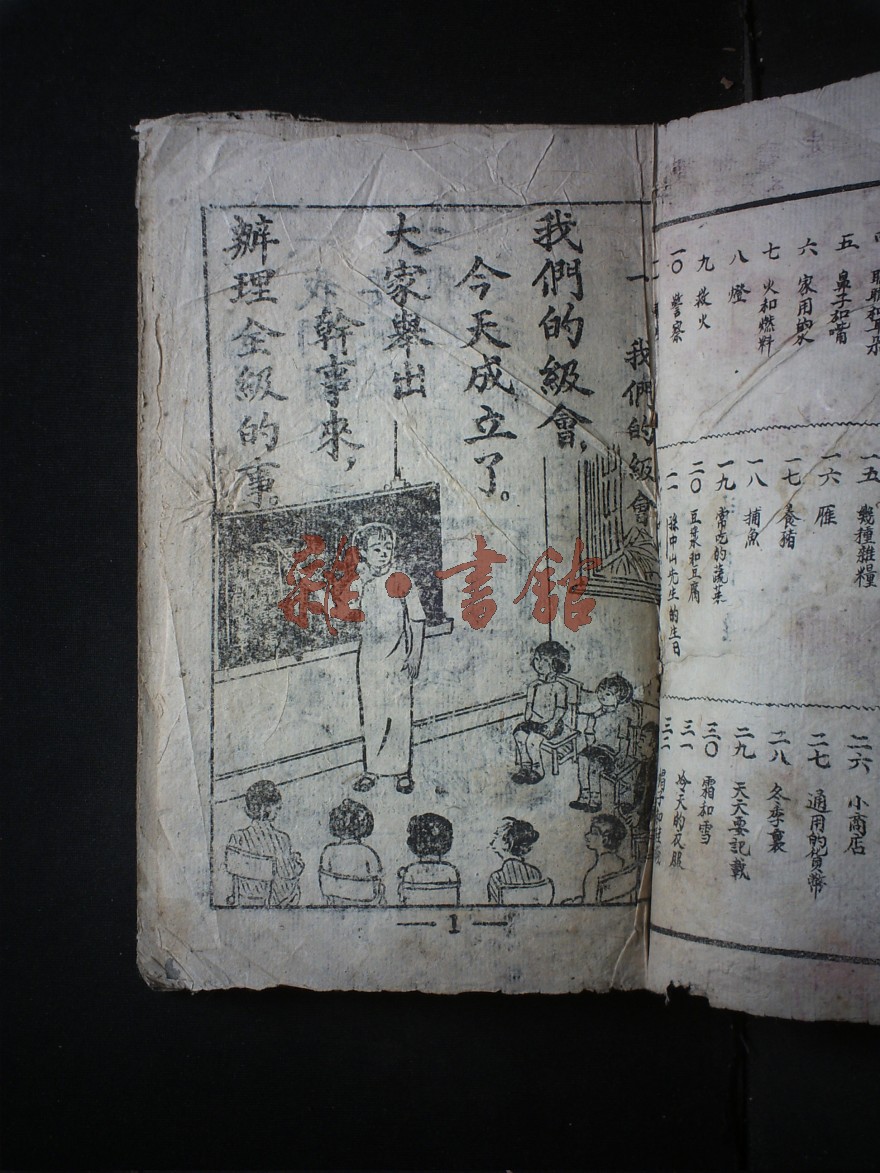 五 鼻子和嘴
六 家用的水
七 火和燃料
八 燈
九 救火
一〇 警察
一五 幾種雜糧
一六 雁
一七 養豬
一八 捕魚
一九 常吃的蔬菜
二〇 豆漿和豆腐
二一 孫中山先生的生日
二六 小商店
二七 通用的貨幣
二八 冬季裏
二九 天天要記載
三〇 霜和雪
三一 冷天的衣服
三二
一 我們的級會
我們的級會，
今天成立了。
大家舉出
幹事來，
辦理全級的事。
1
雜·書館